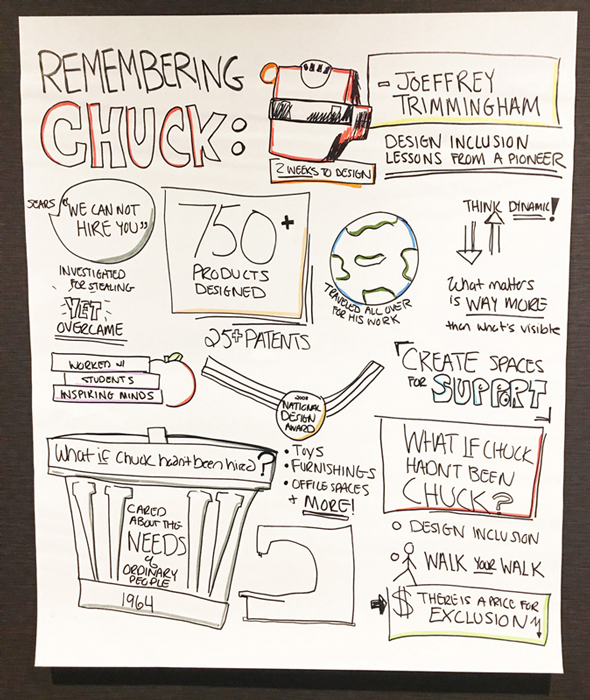 REMEMBERING
CHUCK:
2 WEEKS TO DESIGN
- JOEFFREY
TRIMMINGHAM
DESIGN INCLUSION
LESSONS FROM A PIONEER
SEARS
"WE CAN NOT
HIRE YOU"
INVESTIGATED
FOR STEALING
YET
OVERCAME
750+
PRODUCTS
DESIGNED
25+ PATENTS
TRAVELED ALL OVER
FOR HIS WORK
THINK DYNAMIC!
What matters
is WAY MORE
than what's visible
WORKED W/
STUDENTS
INSPIRING MINDS
2008
NATIONAL
DESIGN
AWARD
• TOYS
• FURNISHINGS
• OFFICE SPACES
+ MORE!
CREATE SPACES
FOR SUPPORT
What if Chuck hadn't been hired?
CARED
ABOUT THE
NEEDS
of
ORDINARY
PEOPLE
1964
WHAT IF CHUCK
HADNT BEEN
CHUCK?
DESIGN INCLUSION
WALK YOUR WALK
$ THERE IS A PRICE FOR
EXCLUSION